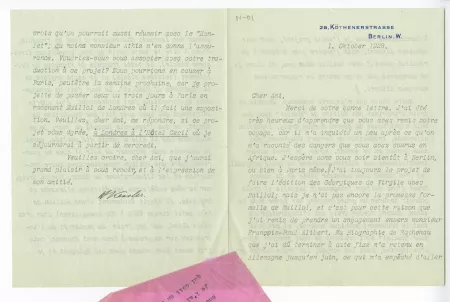 28, KÖTHENERSTRASSE
BERLIN. W.
1. Oktober 1928.
Cher Ami,
Merci de votre bonne lettre. J'ai été
très heureux d'apprendre que vous avez
voyage, car il m'a inquiété un peu après ce qu'on
m'a raconté des dangers que vous avez courus en
Afrique. J'espère donc vous voir bientôt à Berlin,
ou bien à Paris même. J'ai toujours le projet de
faire l'édition des Géorgiques de Virgile avec
Maillol, mais je n'ai pas encore la promesse for-
melle de Maillol, et c'est pour cette raison que
j'ai remis de prendre un engagement envers monsieur
François-Paul Alibert. Ma Biographie de Rathenau
que j'ai dû terminer à date fixe m'a retenu en
Allemagne jusqu'en juin, ce qui m'a empêché d'aller
crois qu'on pourrait aussi réussir avec le
qu monsieur n'en donne l'assu-
rance. Voudriez-vous vous associer avec notre
à ce projet? Nous pourrions en causer à
Paris, peut-être la semaine prochaine, car je pro-
jette de passer deux ou trois jours à Paris en
ramenant Maillol de Londres où il fait une expo-
sition. Veuillez, cher Ami, me répondre, si ce pro-
jet vous agrée, à Londres à l'Hôtel Cecil où je
séjournerai à partir de mercredi.
Veuillez croire, cher Ami, que j'aurai
grand plaisir à vous revoir, et à l'expression de
mon amitié.
Kessler